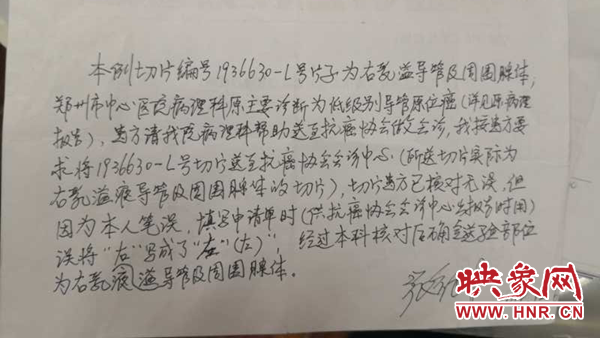 本例切片编号1936630-L号片子为右乳溢导管及周围腺体,
郑州市中心医院病理科原主要诊断为低级别导管原位癌(详见原病理
报告),患方请我院病理科帮助送至抗癌协会做会诊,我按患方要
求将1936630-L号切片送至抗癌协会会诊中心(所送切片实际为
右乳溢液导管及周围腺体的切片),切片患方已核对无误,但
因为本人笔误,填写申请单时(供抗癌协会会诊中心出报告时用)
误将“右”写成了“左”(左)”,经过本科核对后确定送验部位
为右乳液溢导管及周围腺体。
映象网
www.HNR.cn